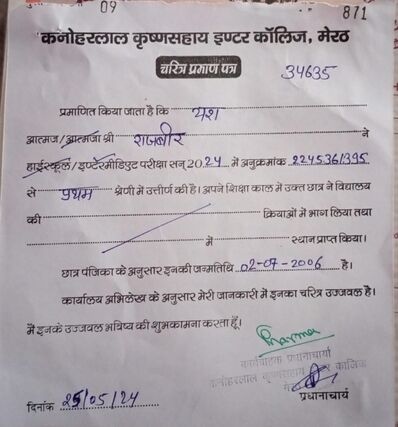 09
871
कनोहरलाल कृष्णसहाय इण्टर कॉलिज, मेरठ
चरित्र प्रमाण पत्र
34635
प्रमाणित किया जाता है कि यश
आत्मज/आत्मजा श्री राजबीर ने
हाईस्कूल/इण्टरमीडिएट परीक्षा सन् 2024 में अनुक्रमांक 2245361395
से प्रथम श्रेणी में उत्तीर्ण की है। अपने शिक्षा काल में उक्त छात्र ने विद्यालय
की क्रियाओं में भाग लिया तथा
में स्थान प्राप्त किया।
छात्र पंजिका के अनुसार इनकी जन्मतिथि 02-07-2006 है।
कार्यालय अभिलेख के अनुसार मेरी जानकारी में इनका चरित्र उज्जवल है।
मैं इनके उज्जवल भविष्य की शुभकामना करता हूँ।
Sharma
कार्यवाहक प्रधानाचार्या
कनोहरलाल कृष्णसहाय इण्टर कालिज
दिनांक 25/05/24
प्रधानाचार्य